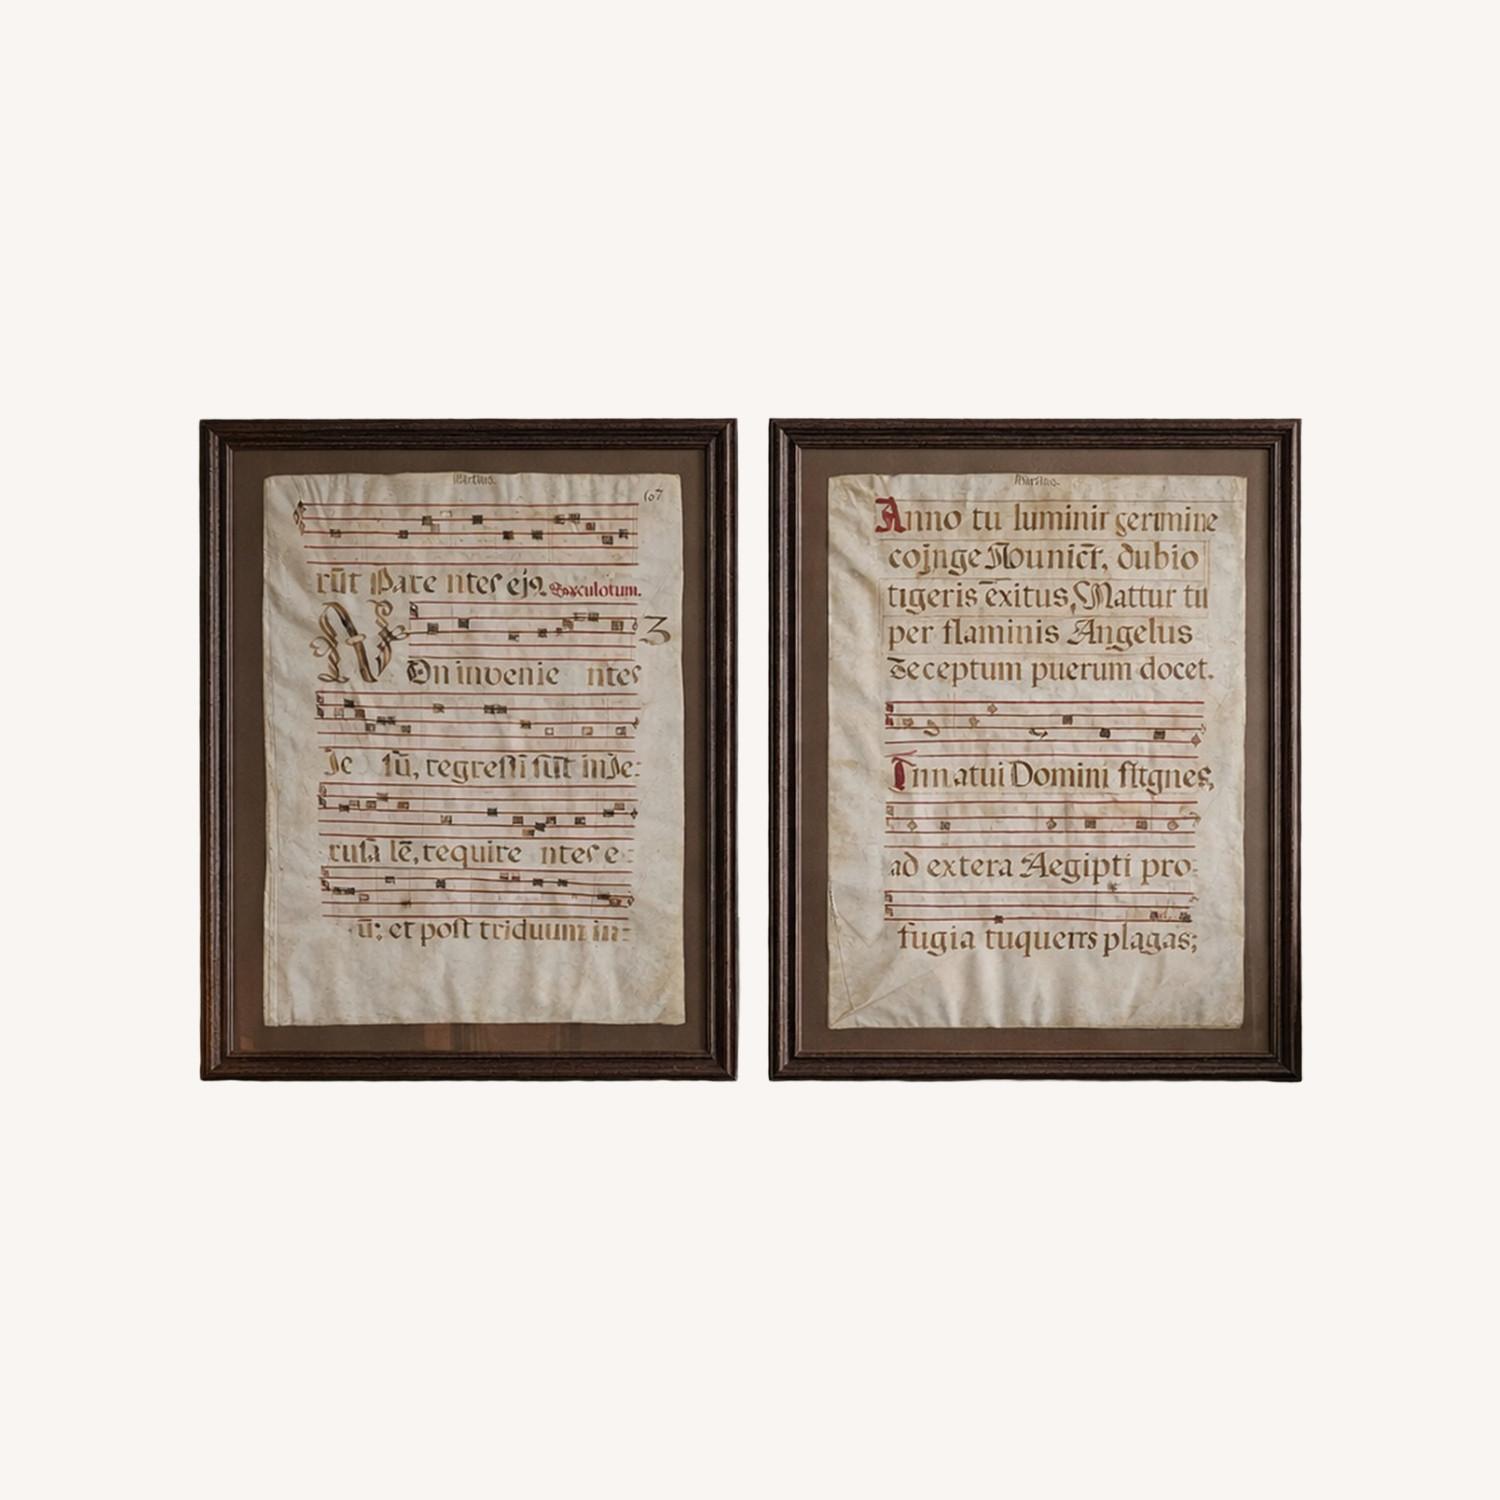 Martius.
107
rūt Pare ntes ejꝰ. Sæculotum.
3
NOn invenie ntes
Je sū, regressi sūt in Je:
rusa lē, require ntes e:
ū: et post triduum in:
Martius.
Anno tu luminir germine
cojnge
dubio
tigeris ēxitus, Mattur tu
per flaminis Angelus
Zeceptum puerum docet.
Innatui Domini
ad extera Aegipti pro:
fugia tuquerrs plagas;